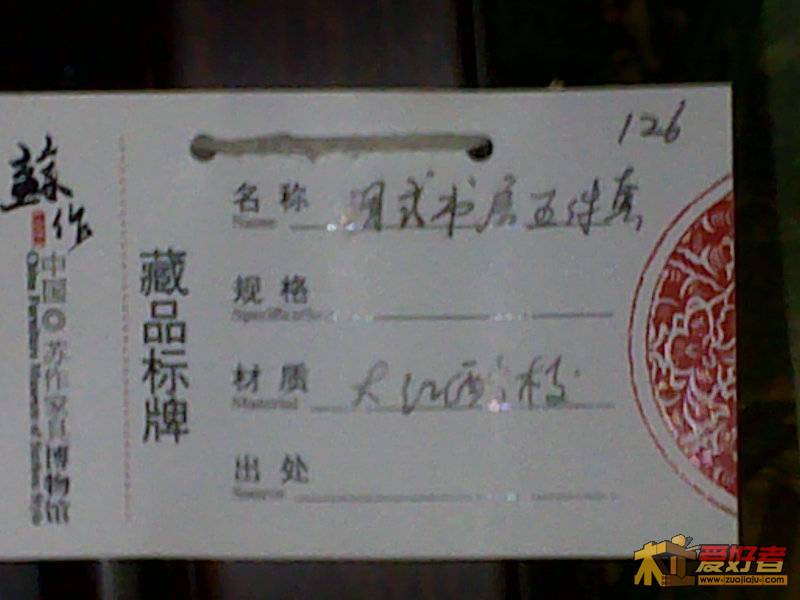 126
蘇作
中国 苏作家具博物馆
China Furniture Museum of Suzhou Style
藏品标牌
名称 明式书房五件套
Name
规格
Specification
材质 大红酸枝
Material
出处
Source
爱好者
www.zuojiaju.com